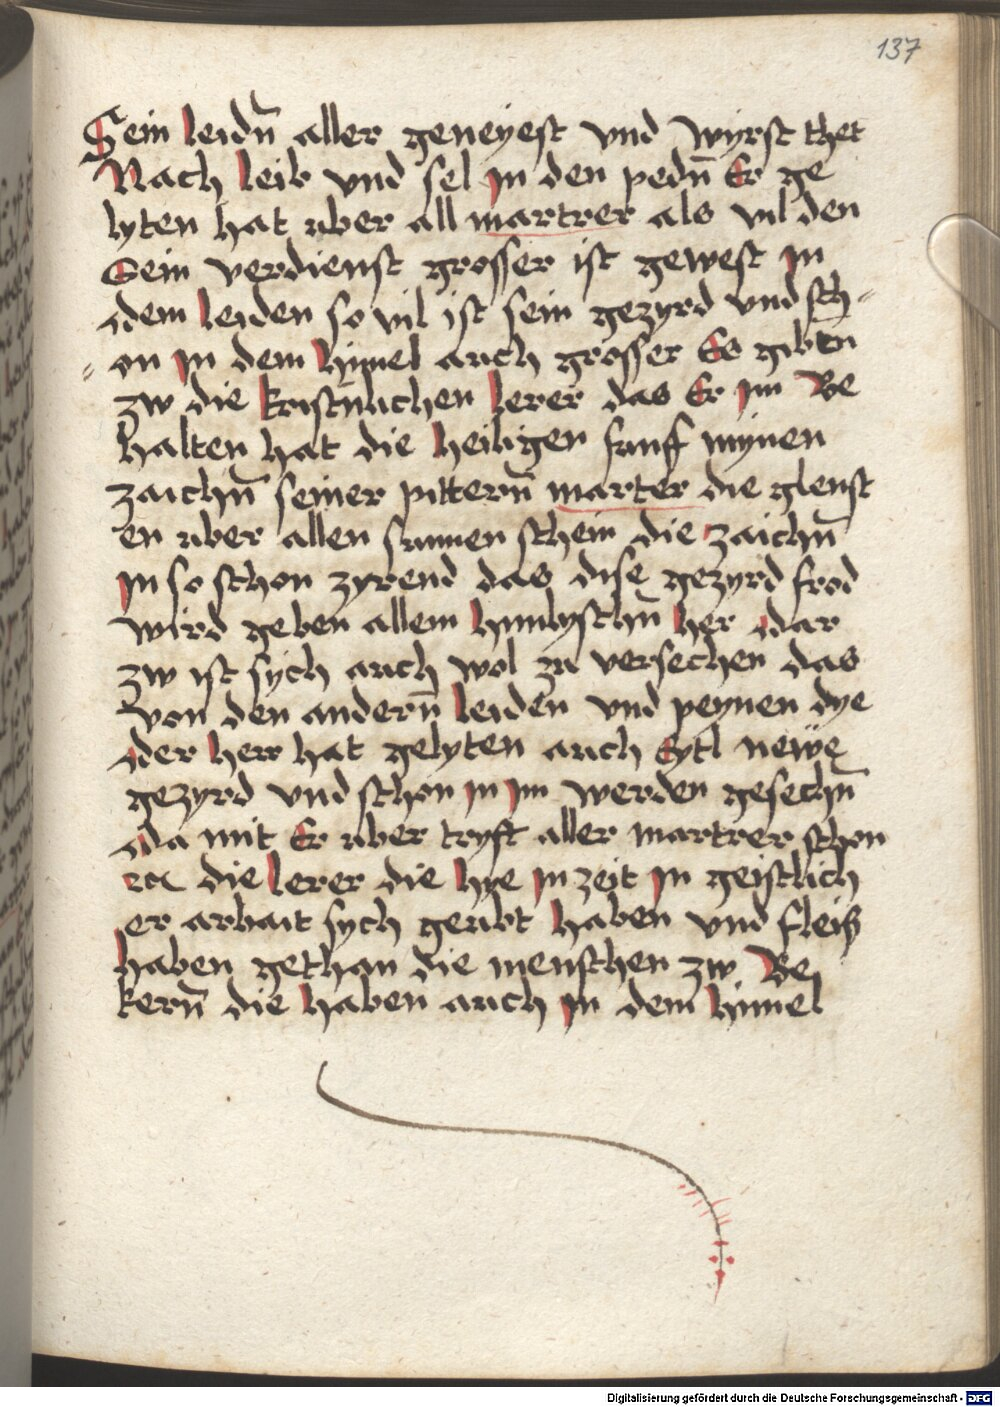 137
Sein leidn̄ aller geneyest vnd wyrst thet
Nach leib vnd sel jn den pedn̄ Er ge
lyten hat vber all martrer als vil den
Sein verdienst grosser ist gewest jn
dem leiden so vil ist sein gezyrd vnd sch-
on jn dem himel auch grosser Es gibtn
zw die kristnlichen lerer das Er jm Be
halten hat die heiligen funff mynen
zaichn̄ seiner pittern̄ marter die glenst
en vber allen sunnen schein die zaichn̄
jn so schon zyrend das dise gezyrd frod
wird geben allem himlyschn̄ her dar
zw ist sych auch wol zu versechen das
von den andern̄ leiden vnd peynen dye
der herr hat gelyten auch Eytl newe
gezyrd vnd schon jn jm werden gesechn̄
da mit Er vber tryft aller martrer schon
die lerer die hye jn zeit jn geistlich
er arbait sych geubt haben vnd fleiß
haben gethan die menschen zw Be
kern̄ die haben auch jn dem himel
Digitalisierung gefördert durch die Deutsche Forschungsgemeinschaft - DFG